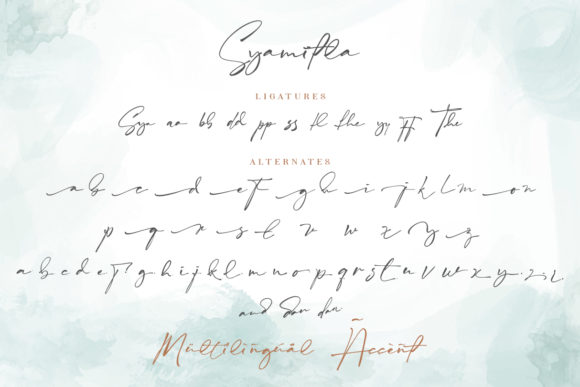 Syamitta
LIGATURES
Sya aa bb dd pp ss tl the yy ff The
ALTERNATES
a b c d e f g h i j k l m on
p q r s t v w x y z
a b c d e f g h i j k l m n o p q r s t u v w x y z
and
Multilingual Accent